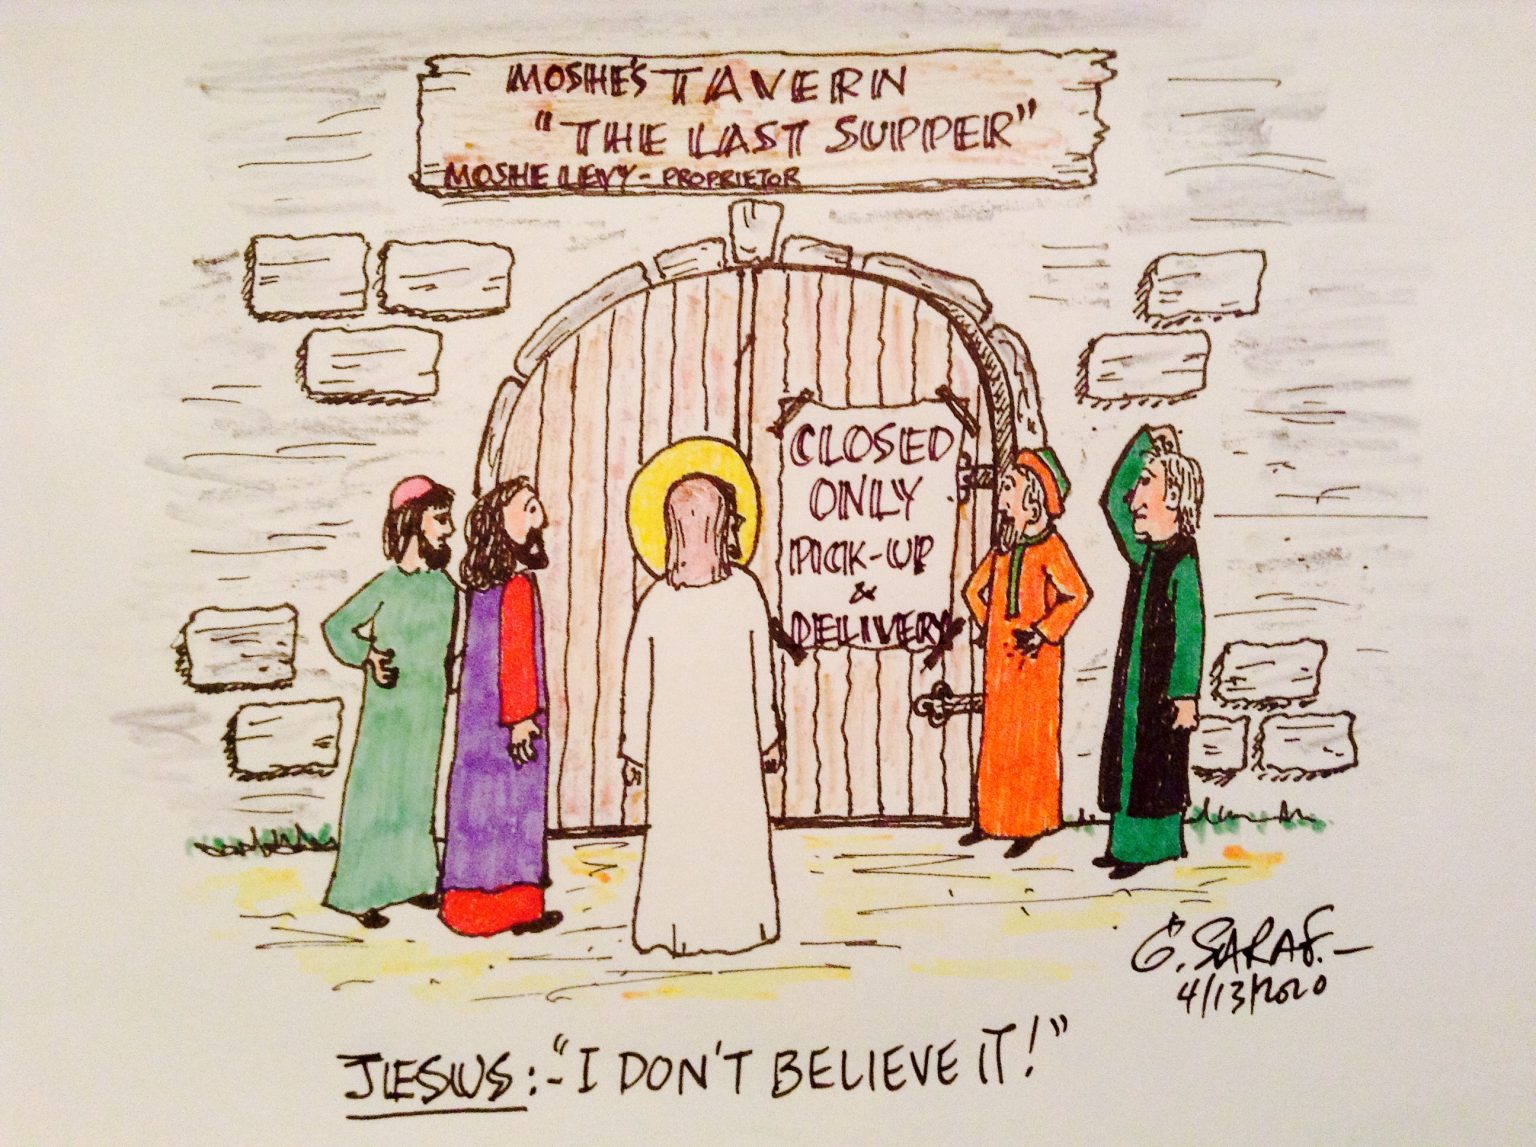 MOSHE'S TAVERN
"THE LAST SUPPER"
MOSHE LEVY - PROPRIETOR
CLOSED
ONLY
PICK-UP
&
DELIVERY
G. SARAF.
4/13/2020
JESUS:- "I DON'T BELIEVE IT!"